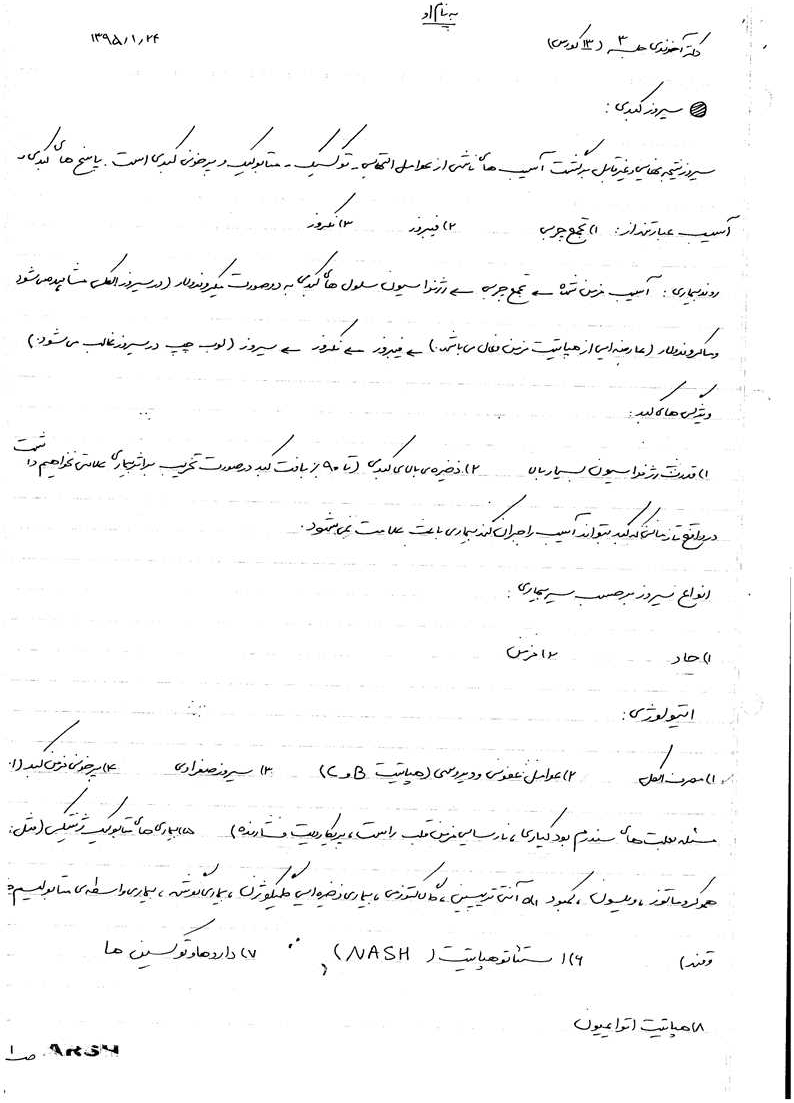 به نام او
دکتر آخوندی جلسه ۳ (۱۳ کورس) ۱۳۹۵/۱/۲۴
سیروز کبدی:
سیروز نتیجه نهایی و غیرقابل برگشت آسیب های ناشی از عوامل التهابی - توکسیک - متابولیک و پرخونی کبدی است. پاسخ های کبدی و
آسیب عبارتند از: ۱) تجمع چربی ۲) فیبروز ۳) نکروز
روند بیماری: آسیب مزمن شده ← تجمع چربی ← رژنراسیون سلول های کبدی به دو صورت میکروندولار (در سیروز الکلی مشاهده می شود
وماکروندولار (عارضه ای از هپاتیت مزمن فعال می باشد) ← فیبروز ← نکروز ← سیروز (لوب چپ در سیروز غالب می شود.)
ویژگی های کبد:
۱) قدرت رژنراسیون بسیار بالا ۲) ذخیره ی بالای کبدی (تا ۹۰٪ بافت کبد در صورت تخریب بر اثر بیماری علامتی نخواهیم داشت
در واقع تا زمانی که کبد بتواند آسیب را جبران کند بیماری باعث علامت نمی شود.
انواع سیروز برحسب سیر بیماری:
۱) حاد ۲) مزمن
اتیولوژی:
۱) مصرف الکل ۲) عوامل عفونی و ویروسی (هپاتیت B و C) ۳) سیروز صفراوی ۴) پرخونی مزمن کبد (از
مسئله بعلت های سندرم بودکیاری، نارسایی مزمن قلب راست، پریکاردیت فشارنده) ۵) بیماری های متابولیک ژنتیکی (مثل:
هموکروماتوز، ویلسون، کمبود α۱ آنتی تریپسین، گالاکتوزمی، بیماری ذخیره ای گلیکوژن، بیماری گوشه، بیماری واسطه ی متابولیسم
وقند) ۶) استئاتوهپاتیت (NASH) ۷) داروها و توکسین ها
۸) هپاتیت اتوایمیون
ARSH ص ۱